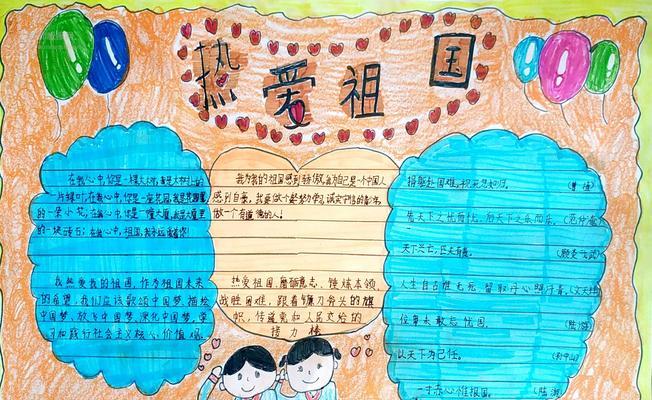 热爱祖国
在我心中,你是一棵大大树,我是大树上的
一片绿叶;在我心中,你是一座花园,我是花园里
的一朵小花;在我心中,你是一幢大厦,我是大厦里
的一块砖石;在我心中,祖国,我永远爱着你!
我热爱我的祖国,作为祖国未来
的希望,我们应该歌颂中国梦,描绘
中国梦,放飞中国梦,深化中国梦,学
习和践行社会主义核心价值观。
我为我的祖国感到骄傲,我为自己是一个中国人
感到自豪,我要做个勤劳学习诚实守信的青少年,
做一个有道德的人!
热爱祖国,磨砺意志,锤炼本领,
战胜困难,跟着镰刀斧头的旗
帜,传递党和人民交给的
接力棒
捐躯赴国难,视死忽如归。(曹植)
先天下之忧而忧,后天下之乐而乐。(范仲淹)
天下兴亡,匹夫有责。(顾炎武)
人生自古谁无死,留取丹心照汗青。(文天祥)
位卑未敢忘忧国。(陆游)
以天下为己任。(孙中山)
一寸赤心惟报国。(陆游)